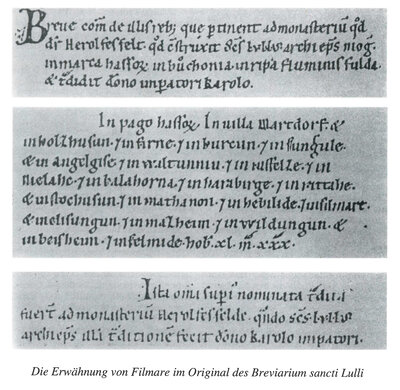 Breue com̅ de illis reb; que ptinent ad monasteriu̅ qd̅
dr̅ Herolfesfelt. qd̅ c̅struxit sc̅s lullus archiep̅s mog̅.
in marca hassoꝝ in buchonia. in ripa fluminis fulda.
& t̅didit do̅no imp̅atori karolo.
In pago hassoꝝ. In uilla Martdorf. &
in holzhusun. ⁊ in ferne. ⁊ in burcun. ⁊ in sungule.
& in angelgise. ⁊ in ⁊ in ⁊ in
⁊ in balahorna. ⁊ in haraburge. ⁊ in rittahe.
& in stochusun. ⁊ in mathanon. ⁊ in hebilide. ⁊ in filmare.
& melisungun. ⁊ in malzheim. ⁊ in wildungun. &
in beisheim. ⁊ in felmide. hob̅. xl. m̅. xxx.
Ista om̅ia sup̅i nominata t̅dita
fuer̅t ad monasteriu̅ Herolfesfelde. qn̅do sc̅s lullus
archiep̅s illi t̅ditione̅ fecit do̅no karolo imp̅atori.
Die Erwähnung von Filmare im Original des Breviarium sancti Lulli